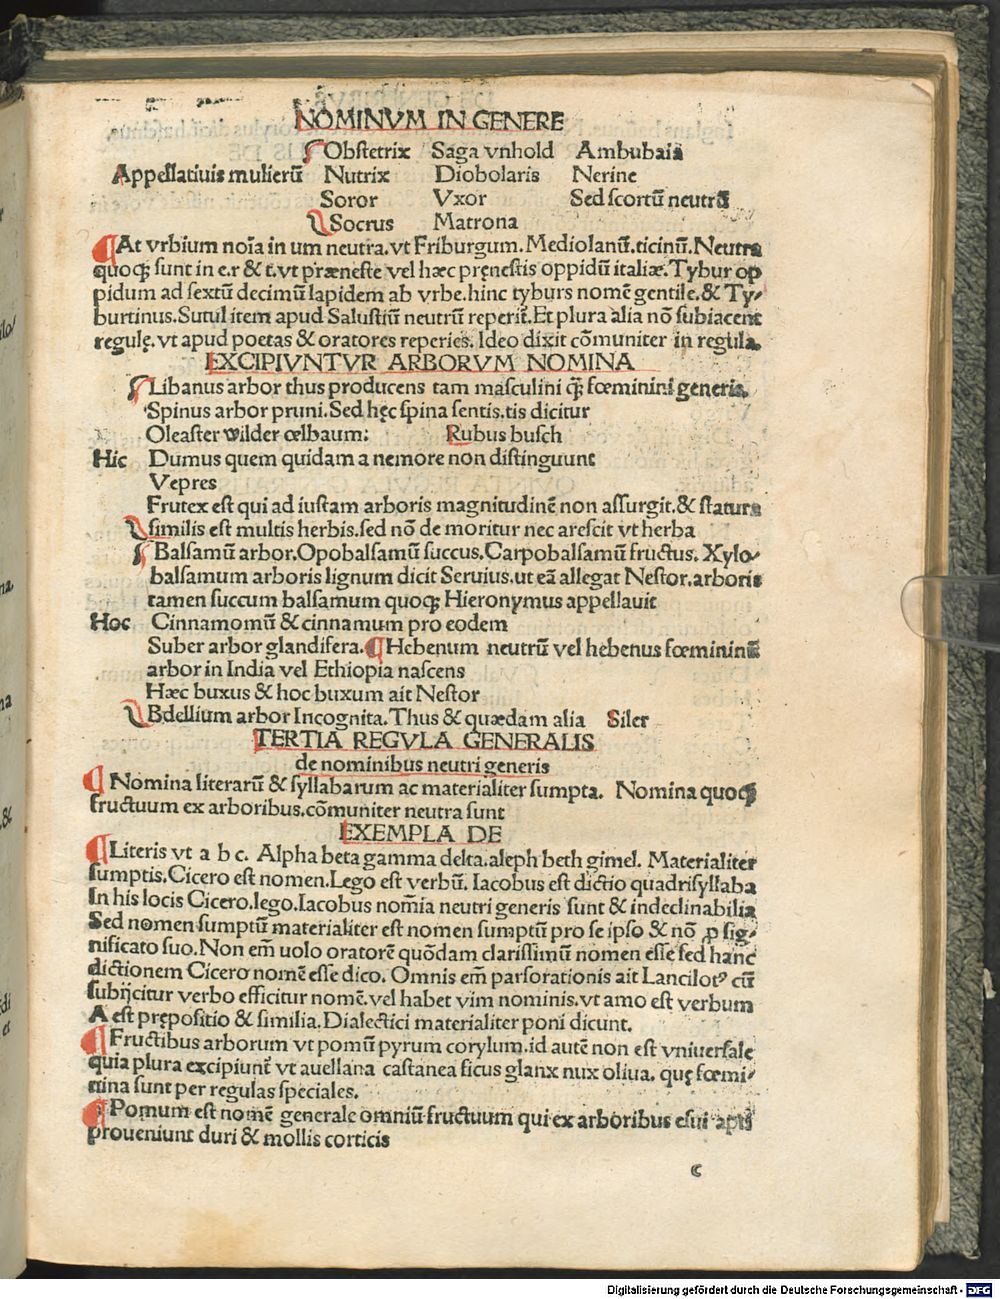 NOMINVM IN GENERE
Obstetrix Saga vnhold Ambubaia
Appellatiuis mulierū Nutrix Diobolaris Nerine
Soror Vxor Sed scortū neutrū
Socrus Matrona
¶At vrbium noīa in um neutra.vt Friburgum.Mediolanū.ticinū.Neutra
quoqꝫ sunt in e.r & t.vt præneste vel hæc pręnestis oppidū italiæ.Tybur op
pidum ad sextū decimū lapidem ab vrbe.hinc tyburs nomē gentile.& Ty/
burtinus.Sutul item apud Salustiū neutrū reperit̄.Et plura alia nō subiacent
regulę.vt apud poetas & oratores reperies.Ideo dixit cōmuniter in regula.
EXCIPIVNTVR ARBORVM NOMINA
Libanus arbor thus producens tam masculini q̄ꝫ fœminini generis.
Spinus arbor pruni.Sed hęc spina sentis.tis dicitur
Oleaster wilder œlbaum: Rubus busch
Hic Dumus quem quidam a nemore non distinguunt
Vepres
Frutex est qui ad iustam arboris magnitudinē non assurgit.& statura
similis est multis herbis.sed nō de moritur nec arescit vt herba
Balsamū arbor.Opobalsamū succus.Carpobalsamū fructus. Xylo/
balsamum arboris lignum dicit Seruius.ut eā allegat Nestor.arboris
tamen succum balsamum quoqꝫ Hieronymus appellauit
Hoc Cinnamomū & cinnamum pro eodem
Suber arbor glandifera.¶Hebenum neutrū vel hebenus fœmininū
arbor in India vel Ethiopia nascens
Hæc buxus & hoc buxum ait Nestor
Bdellium arbor Incognita.Thus & quædam alia Siler
TERTIA REGVLA GENERALIS
de nominibus neutri generis
¶Nomina literarū & syllabarum ac materialiter sumpta. Nomina quoqꝫ
fructuum ex arboribus.cōmuniter neutra sunt
EXEMPLA DE
¶Literis vt a b c. Alpha beta gamma delta.aleph beth gimel. Materialiter
sumptis.Cicero est nomen.Lego est verbū. Iacobus est dictio quadrisyllaba
In his locis Cicero.lego.Iacobus nomīa neutri generis sunt & indeclinabilia
Sed nomen sumptū materialiter est nomen sumptū pro se ipso & nō ꝓ sig/
nificato suo.Non em̄ uolo oratorē quōdam clarissimū nomen esse sed hanc
dictionem Cicero nomē esse dico. Omnis em̄ pars orationis ait Lancilotꝰ cū
subijcitur verbo efficitur nomē.vel habet vim nominis.vt amo est verbum
A est prępositio & similia.Dialectici materialiter poni dicunt.
¶Fructibus arborum vt pomū pyrum corylum.id autē non est vniuersale
quia plura excipiunt̄ vt auellana castanea ficus glanx nux oliua. quę fœmi/
nina sunt per regulas speciales.
¶Pomum est nomē generale omniū fructuum qui ex arboribus esui apti
proueniunt duri & mollis corticis
c
Digitalisierung gefördert durch die Deutsche Forschungsgemeinschaft - DFG